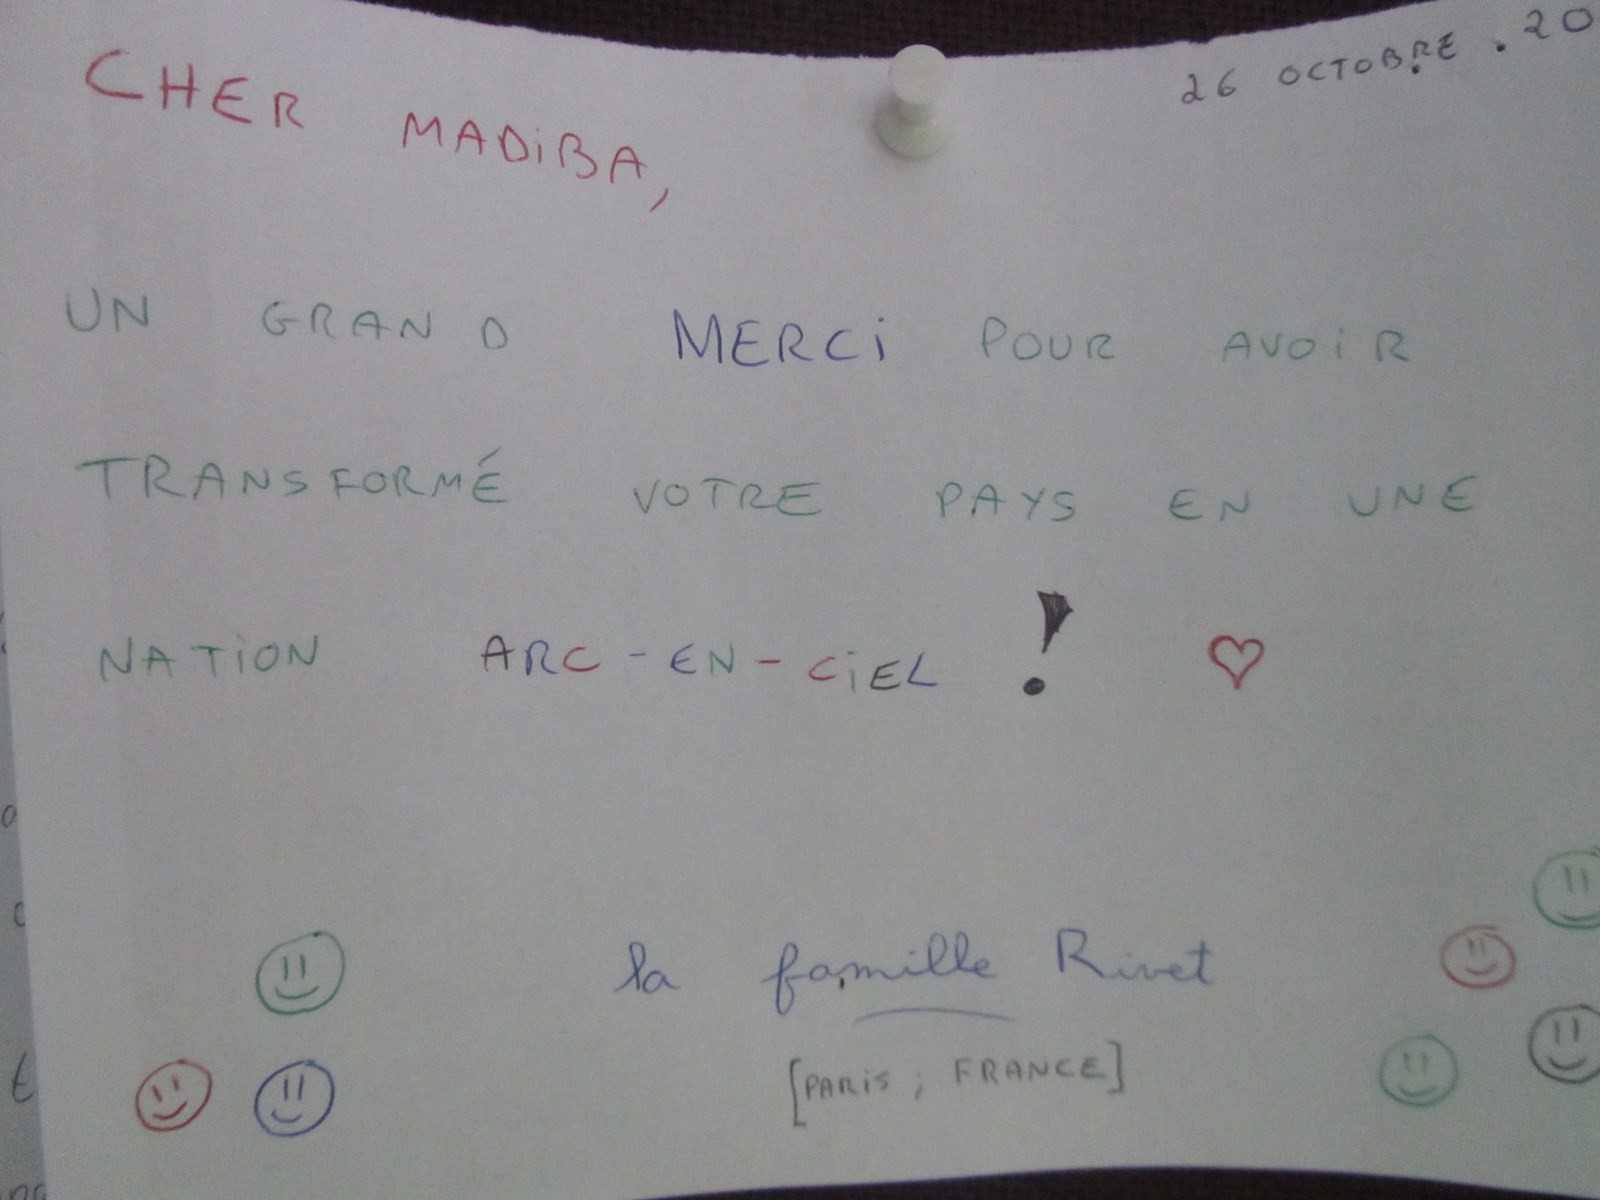 26 OCTOBRE . 20
CHER MADiBA,
UN GRAND MERCi POUR AVOiR
TRANSFORMÉ VOTRE PAYS EN UNE
NATiON ARC-EN-CiEL !
la famille Rivet
[PARiS ; FRANCE]